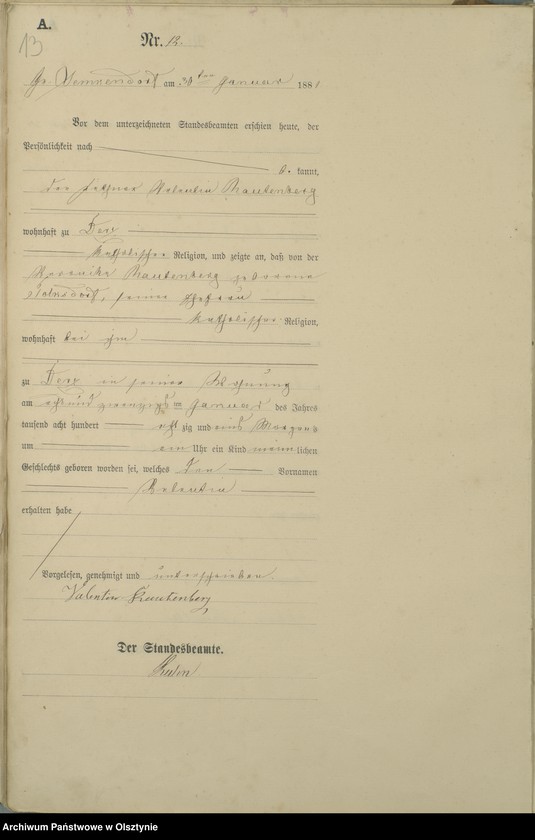 A.
13
Nr. 12.
am 31ten Januar 1881
Vor dem unterzeichneten Standesbeamten erschien heute, der
Persönlichkeit nach
be kannt,
der Valentin Rautenberg
wohnhaft zu Derz
katholischer Religion, und zeigte an, daß von der
Veronika Rautenberg geborene
seiner Ehefrau
katholischer Religion,
wohnhaft bei ihm
zu Derz in seiner Wohnung
am acht und zwanzigsten Januar des Jahres
tausend acht hundert acht zig und eins Morgens
um ein Uhr ein Kind männlichen
Geschlechts geboren worden sei, welches den Vornamen
Valentin
erhalten habe
Vorgelesen, genehmigt und unterschrieben.
Valentin Rautenberg,
Der Standesbeamte.
Archiwum Państwowe w Olsztynie